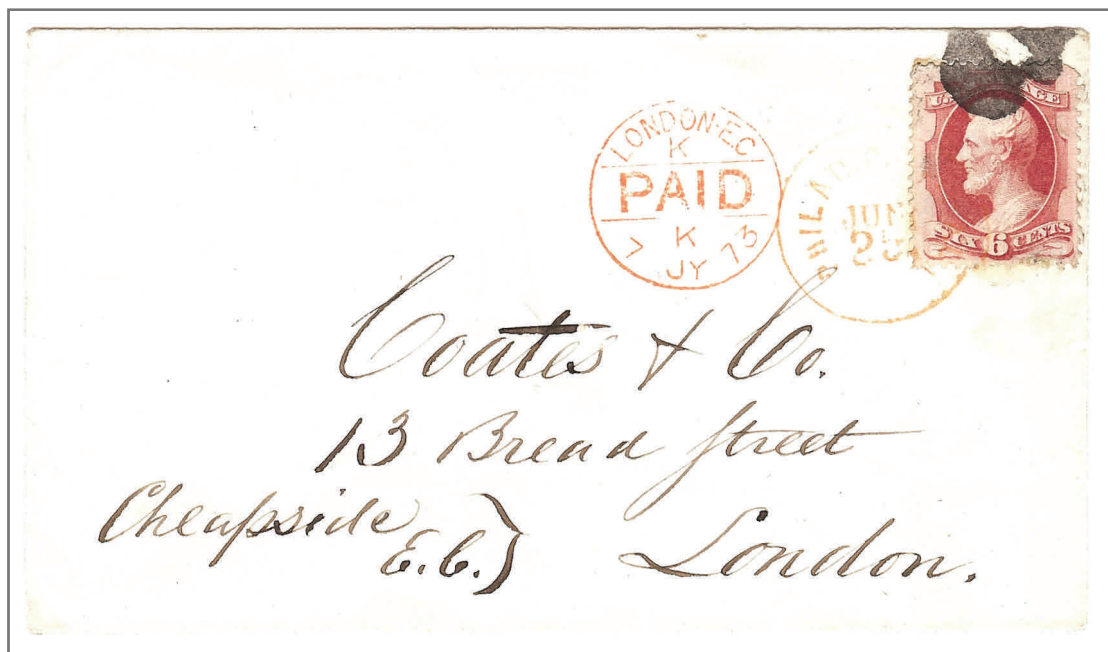 LONDON·E.C
K
PAID
K
7 JY 73
PHILAD
JUN
25
AGE
SIX 6 CENTS
Coates & Co.
13 Bread Street
Cheapside
E.C.}
London.